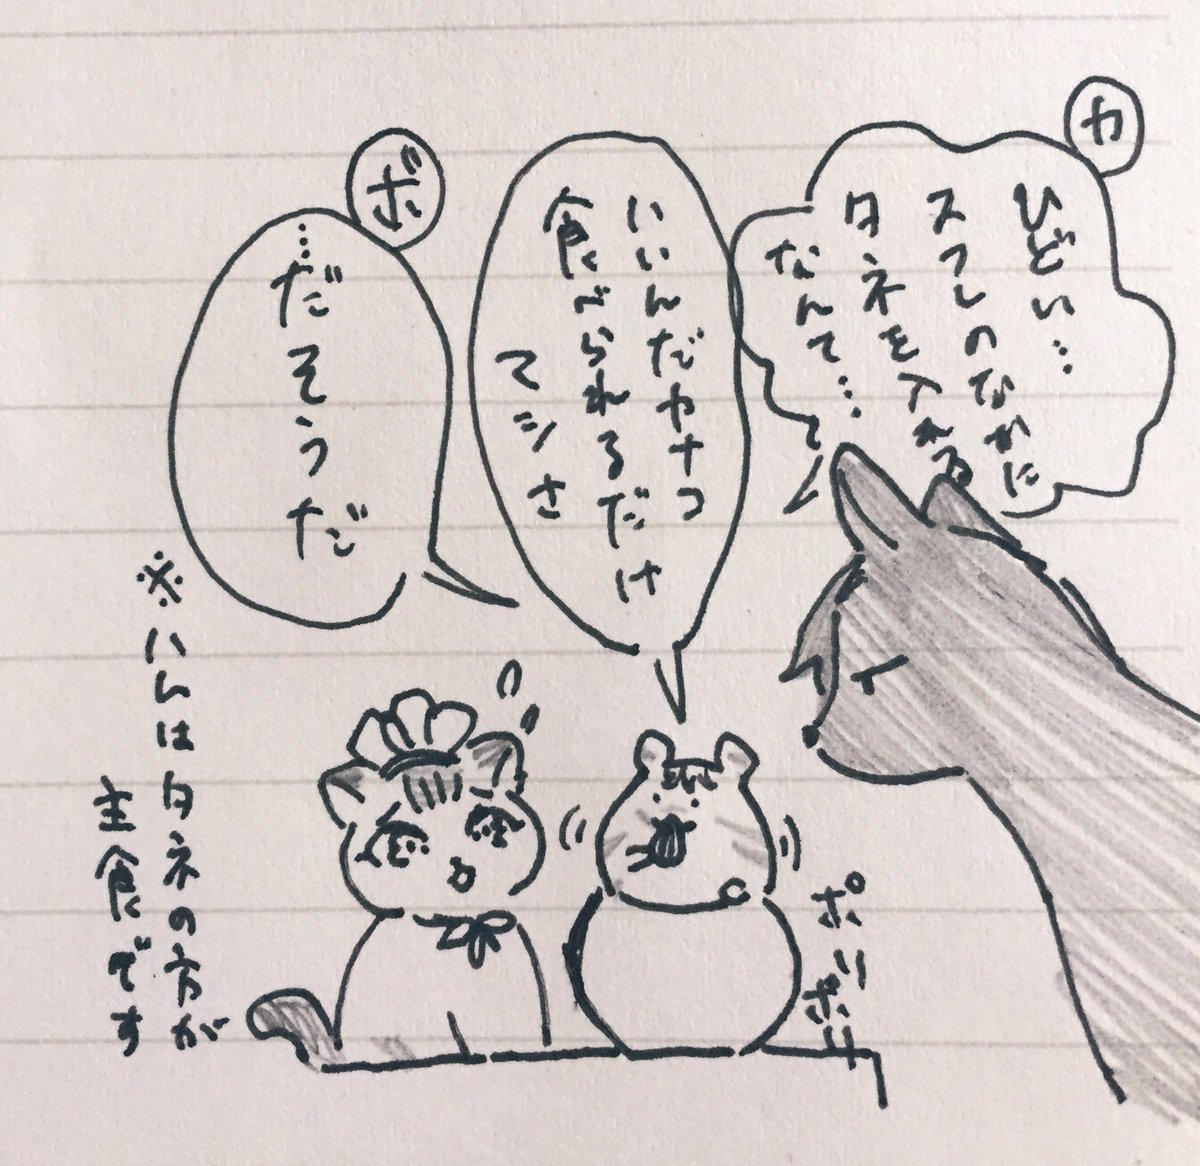 カ
ひどい…
スフレのなかに
タネを入れる
なんて…
いいんだカナつ
食べられるだけ
マシさ
ボ
…だそうだ
ポリポリ
※ハムはタネの方が
主食です